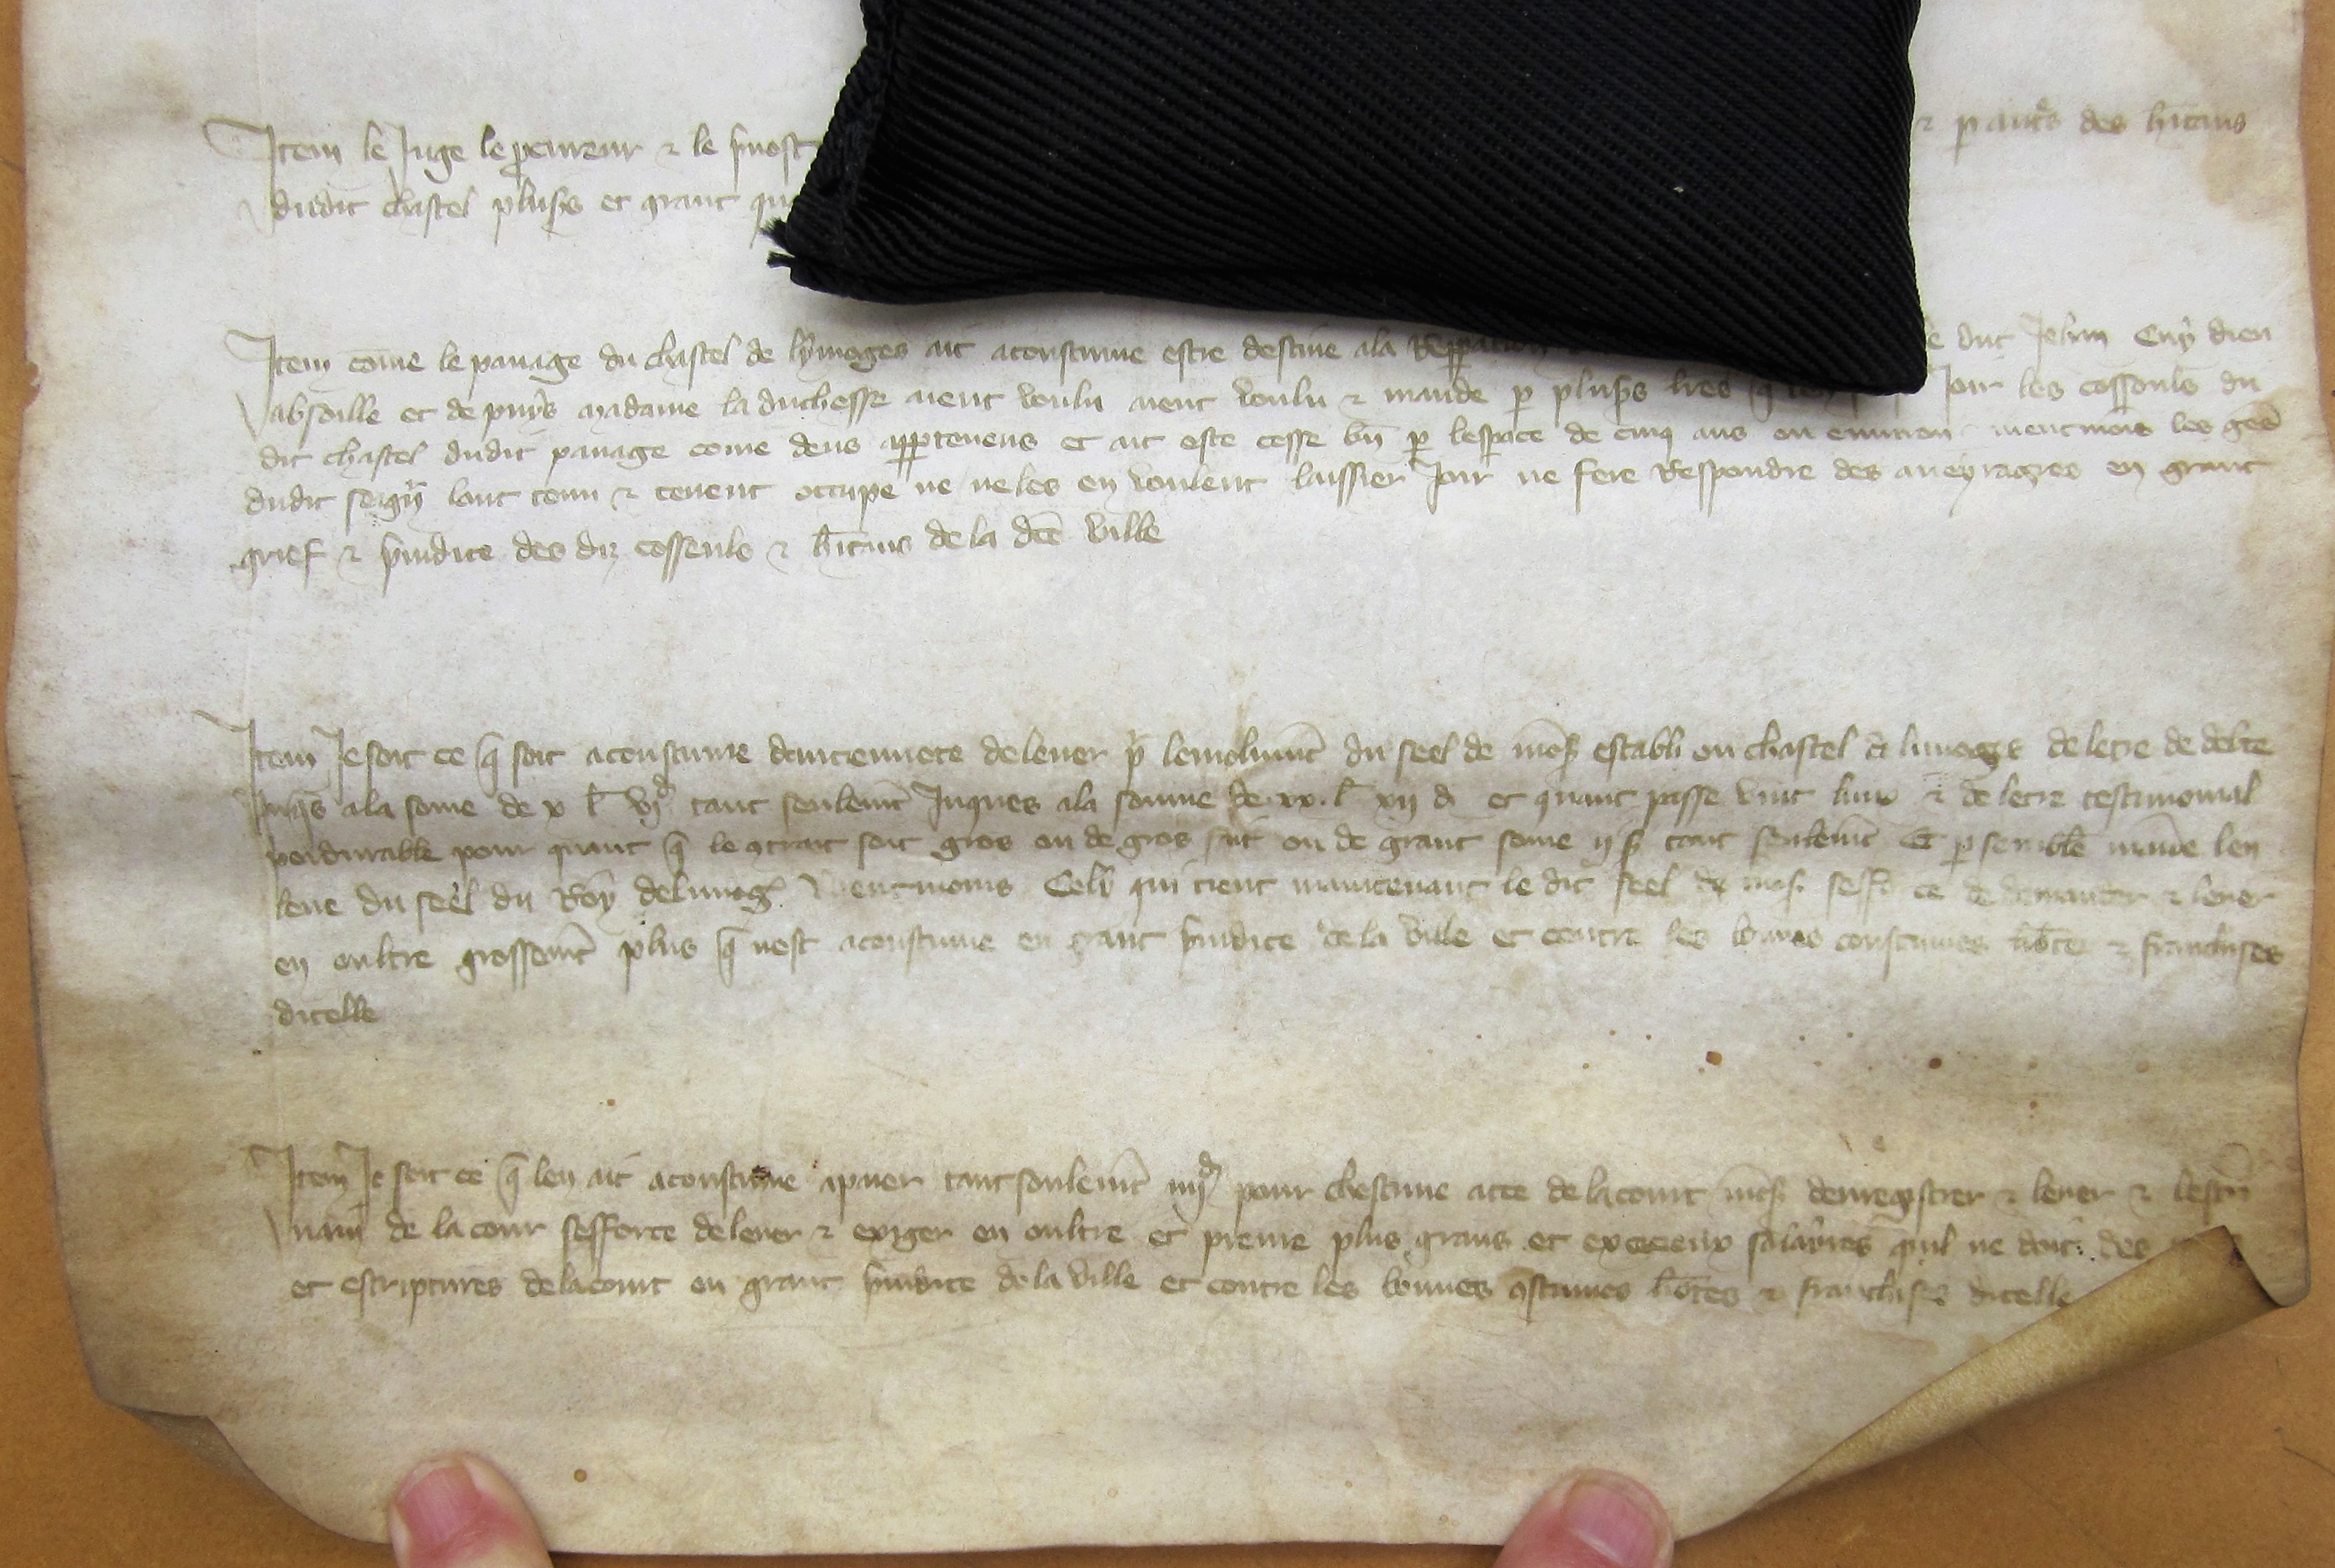 Item le Juge le pcureur & le pvost & p autrs des hitans
dudit chastel plusrs et grant
Item come le pauage du chastel de lymoges ait acoustume estre destine ala duc Jehan Cuy dieu
absoille et depuys madame la duchesse aient voulu aient voulu & mande p plusrs lres Joir les cossouls du
dit chastel dudit pauage come deus appertenens et ait este cesse bn p lespace de cinq ans ou environ nientmois les gens
dudit seigr lont tenu & tenent occupe ne ne les en voulent laissier Joir ne fere Respondre des aneyrages en grant
grief & piudice des diz cossouls & hitans de la dce ville
Item Je soit ce q soit acoustume danciennete de lever pr lemolumt du seel de mons establi ou chastel de limoges de letre de debte
Juqs ala some de x l vj d tant seulemt Juques ala somme de xx l xij d et quant passe vint livr & de letre testimonial
perdurable pour quant q le 9trait soit gros ou de gros fait ou de grant some ij s tant seulemt Et p semble maniere len
leve du seel du Roy de limog Nientmoins Celi qui tient maintenant le dit seel de mons seffo ce de demander & lever
en oultre grossemt plus q nest acoustume en grant piudice de la ville et contre les bonnes coustumes libtes & franchises
dicelle
Item Je soit ce q len ait acoustume apaier tant soulemt iiij d pour chescune acte de la court mons denregistrer & lever &
de la cour sefforce de lever & exiger en oultre et prenre plus grans et excecens salayres quil ne doit des
et escriptures de la court en grant piudice de la ville et contre les bonnes 9stumes libtes & franchises dicelle